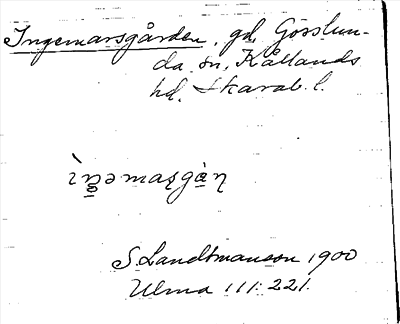 Ingemarsgården, gd, Görslun-
da sn, Kållands
hd. Skarab. l.
S. Landtmanson 1900
Ulma 111:221.